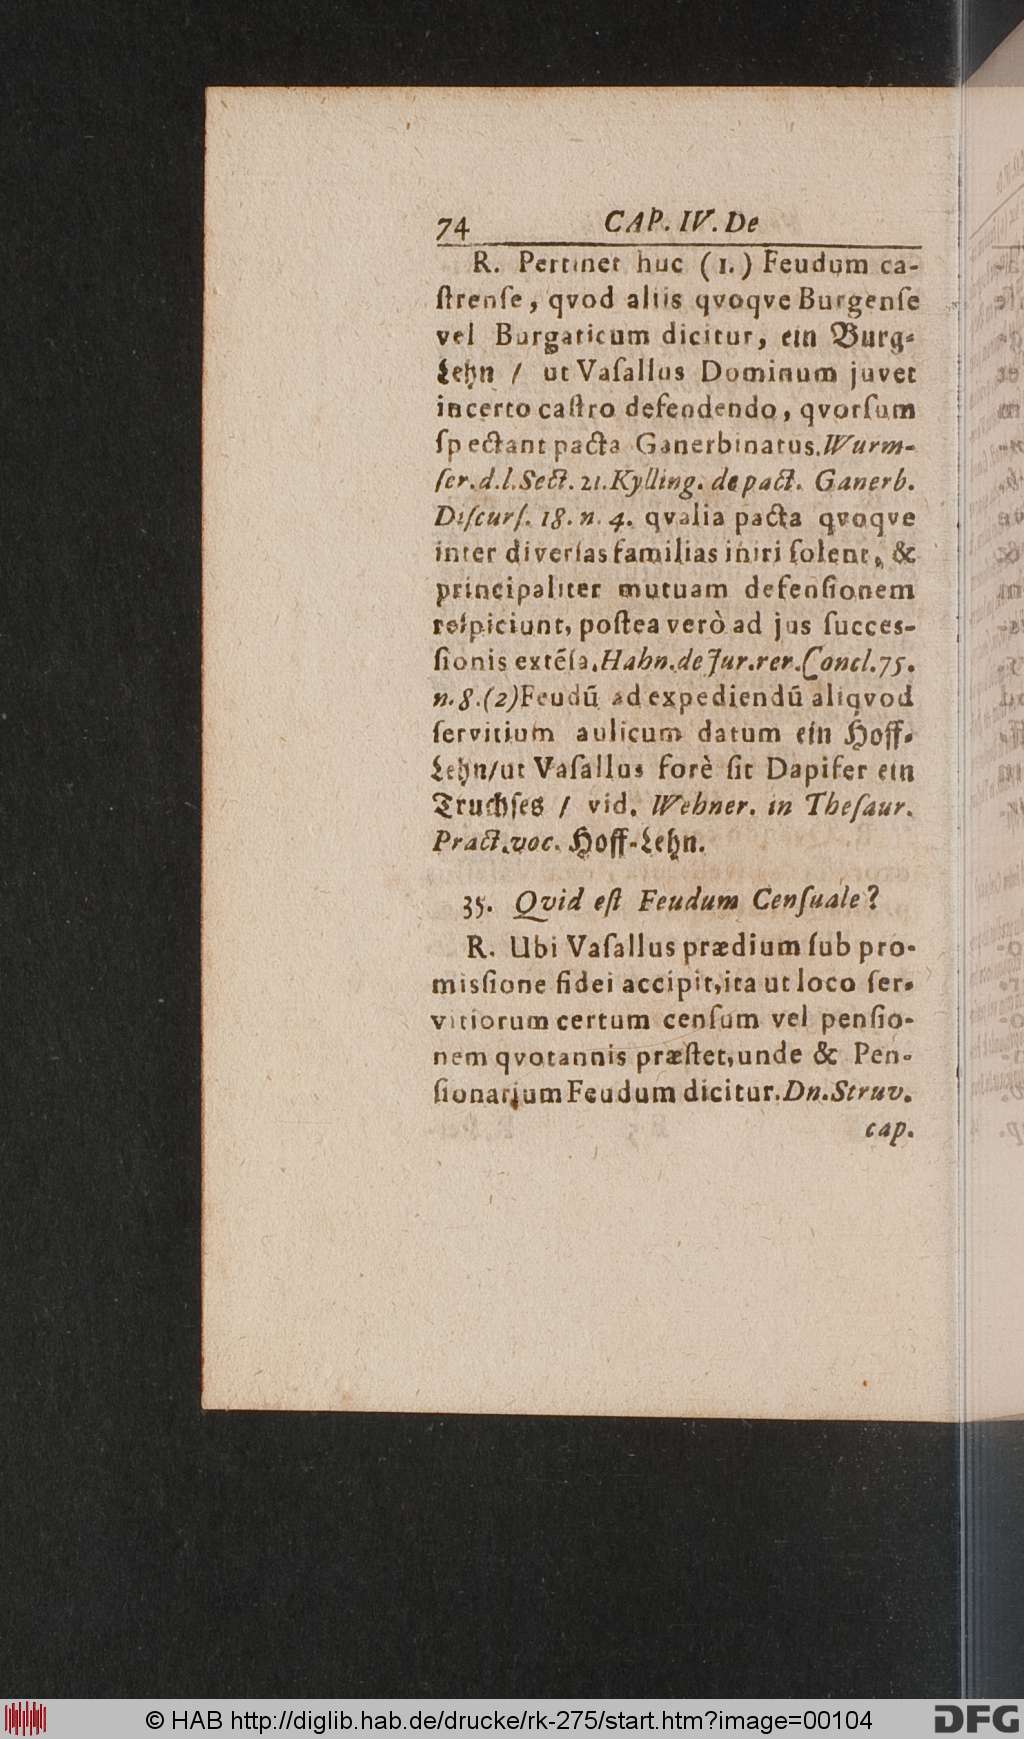 74 CAP. IV. De
R. Pertinet huc (1.) Feudum ca-
ſtrenſe, qvod aliis qvoqve Burgenſe
vel Burgaticum dicitur, ein Burg-
Lehn / ut Vaſallus Dominum juvet
incerto caſtro defendendo, qvorſum
ſpectant pacta Ganerbinatus. Wurm-
ſer. d. l. Sect. 21. Kylling. de pact. Ganerb.
Diſcurſ. 18. n. 4. qvalia pacta qvoqve
inter diverſas familias iniri ſolent, &
principaliter mutuam defenſionem
reſpiciunt, poſtea verò ad jus ſucces-
ſionis extēſa. Hahn. de Jur. rer. Concl. 75.
n. 8. (2) Feudū ad expediendū aliqvod
ſervitium aulicum datum ein Hoff-
Lehn/ ut Vaſallus forè ſit Dapifer ein
Truchſes / vid. Wehner. in Theſaur.
Pract. voc. Hoff-Lehn.
35. Qvid eſt Feudum Cenſuale?
R. Ubi Vaſallus prædium ſub pro-
misſione fidei accipit, ita ut loco ſer-
vitiorum certum cenſum vel penſio-
nem qvotannis præſtet, unde & Pen-
ſionarium Feudum dicitur. Dn. Struv.
cap.
© HAB http://diglib.hab.de/drucke/rk-275/start.htm?image=00104
DFG